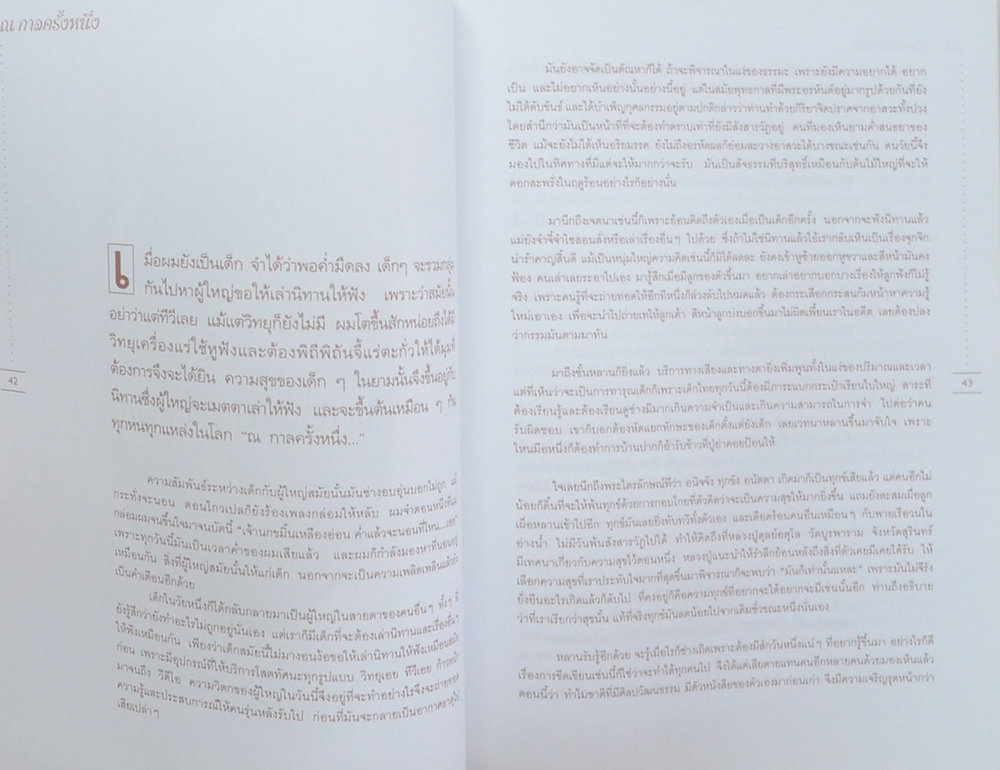 ณ กาลครั้งหนึ่ง
เมื่อผมยังเป็นเด็ก จำได้ว่าพอค่ำมืดลง เด็กๆ จะรวมกลุ่ม
กันไปหาผู้ใหญ่ขอให้เล่านิทานให้ฟัง เพราะว่าสมัยนั้น
อย่าว่าแต่ทีวีเลย แม้แต่วิทยุก็ยังไม่มี ผมโตขึ้นสักหน่อยถึงได้มี
วิทยุเครื่องแร่ใช้หูฟังและต้องพิถีพิถันจี้แร่ตะกั่วให้ได้มุมที่
ต้องการจึงจะได้ยิน ความสุขของเด็ก ๆ ในยามนั้นจึงขึ้นอยู่กับ
นิทานซึ่งผู้ใหญ่จะเมตตาเล่าให้ฟัง และจะขึ้นต้นเหมือน ๆ กัน
ทุกหนทุกแหล่งในโลก “ณ กาลครั้งหนึ่ง...”
42
ความสัมพันธ์ระหว่างเด็กกับผู้ใหญ่สมัยนั้นมันช่างอบอุ่นบอกไม่ถูก แม้
กระทั่งจะนอน ตอนไกวเปลก็ยังร้องเพลงกล่อมให้หลับ ผมจำตอนหนึ่งที่แม่
กล่อมผมจนขึ้นใจมาจนบัดนี้ “เจ้านกขมิ้นเหลืองอ่อน ค่ำแล้วจะนอนที่ไหน...เอย”
เพราะทุกวันนี้มันเป็นเวลาค่ำของผมเสียแล้ว และผมก็กำลังมองหาที่นอนอยู่
เหมือนกัน สิ่งที่ผู้ใหญ่สมัยนั้นให้แก่เด็ก นอกจากจะเป็นความเพลิดเพลินแล้วยัง
เป็นคำเตือนอีกด้วย
เด็กในวัยหนึ่งก็ได้กลับกลายมาเป็นผู้ใหญ่ในสายตาของคนอื่นๆ ทั้งๆ ที่
ยังรู้สึกว่ายังทำอะไรไม่ถูกอยู่นั่นเอง แต่เราก็มีเด็กที่จะต้องเล่านิทานและเรื่องอื่นๆ
ให้ฟังเหมือนกัน เพียงว่าเด็กสมัยนี้ไม่มางอนง้อขอให้เล่านิทานให้ฟังเหมือนสมัย
ก่อน เพราะมีอุปกรณ์ที่ให้บริการโสตทัศนะทุกรูปแบบ วิทยุเอย ทีวีเอย ก้าวหน้า
มาจนถึง วีดีโอ ความวิตกของผู้ใหญ่ในวันนี้จึงอยู่ที่จะทำอย่างไรจึงจะถ่ายทอด
ความรู้และประสบการณ์ให้คนรุ่นหลังรับไป ก่อนที่มันจะกลายเป็นอากาศธาตุไป
เสียเปล่าๆ
มันยังอาจจัดเป็นตัณหาก็ได้ ถ้าจะพิจารณาในแง่ของธรรมะ เพราะยังมีความอยากได้ อยาก
เป็น และไม่อยากเห็นอย่างนั้นอย่างนี้อยู่ แต่ในสมัยพุทธกาลที่มีพระอรหันต์อยู่มากรูปด้วยกันที่ยัง
ไม่ได้ดับขันธ์ และได้บำเพ็ญกุศลกรรมอยู่ตามปกติกล่าวว่าท่านทำด้วยกิริยาจิตปราศจากอาสวะทั้งปวง
โดยสำนึกว่ามันเป็นหน้าที่ที่จะต้องทำตราบเท่าที่ยังมีสังสารวัฏอยู่ คนที่มองเห็นยามค่ำสนธยาของ
ชีวิต แม้จะยังไม่ได้เห็นอริยมรรค ยังไม่ถึงอรหัตผลก็ย่อมละวางอาสวะได้บางขณะเช่นกัน คนวัยนี้จึง
มองไปในทิศทางที่มีแต่จะให้มากกว่าจะรับ มันเป็นสัจธรรมที่บริสุทธิ์เหมือนกับต้นไม้ใหญ่ที่จะให้
ดอกสะพรั่งในฤดูร้อนอย่างไรก็อย่างนั้น
มานึกถึงเจตนาเช่นนี้ก็เพราะย้อนคิดถึงตัวเองเมื่อเป็นเด็กอีกครั้ง นอกจากจะฟังนิทานแล้ว
แม่ยังจำจี้จำไชสอนสั่งหรือเล่าเรื่องอื่นๆ ไปด้วย ซึ่งถ้าไม่ใช่นิทานแล้วใช้เรากลับเห็นเป็นเรื่องจุกจิก
น่ารำคาญสิ้นดี แม้เป็นหนุ่มใหญ่ความคิดเช่นนี้ก็มิได้ลดละ ยังคงเข้าหูซ้ายออกหูขวาและสีหน้ามันคง
ฟ้อง คนเล่าเลยระอาไปเอง มารู้สึกเมื่อมีลูกของตัวขึ้นมา อยากเล่าอยากบอกบางเรื่องให้ลูกฟังก็ไม่รู้
จริง เพราะคนรู้ที่จะถ่ายทอดให้อีกทีหนึ่งก็ล่วงลับไปหมดแล้ว ต้องกระเสือกกระสนก้มหน้าหาความรู้
ใหม่เอาเอง เพื่อจะนำไปถ่ายเทให้ลูกเต้า สีหน้าลูกบ่งบอกขึ้นมาไม่ผิดเพี้ยนเราในอดีต เลยต้องปลง
ว่ากรรมมันตามมาทัน
มาถึงชั้นหลานก็ยิ่งแล้ว บริการทางเสียงและทางตายิ่งเพิ่มพูนทั้งในแง่ของปริมาณและเวลา
แต่ที่เห็นว่าจะเป็นการทารุณเด็กก็เพราะเด็กไทยทุกวันนี้ต้องมีภาระแบกกระเป๋าเรียนใบใหญ่ สาระที่
ต้องเรียนรู้และต้องเรียนดูช่างมีมากเกินความจำเป็นและเกินความสามารถในการจำ ไปต่อว่าคน
รับผิดชอบ เขาก็บอกต้องหัดแยกทักษะของเด็กตั้งแต่ยังเด็ก เลยเวทนาหลานขึ้นมาจับใจ เพราะ
ไหนมือหนึ่งก็ต้องทำการบ้านปากก็อ้ารับข้าวที่ปู่ย่าคอยป้อนให้
43
ใจเลยนึกถึงพระไตรลักษณ์ที่ว่า อนิจจัง ทุกขัง อนัตตา เกิดมาก็เป็นทุกข์เสียแล้ว แต่คนอีกไม่
น้อยก็ดิ้นที่จะให้พ้นทุกข์ด้วยการกอบโกยที่ตัวคิดว่าจะเป็นความสุขให้มากยิ่งขึ้น แถมยังสะสมเผื่อลูก
เผื่อหลานเข้าไปอีก ทุกข์มันเลยยิ่งทับทวีทั้งตัวเอง และเดือดร้อนคนอื่นเหมือนๆ กับพายเรือวนใน
อ่างน้ำ ไม่มีวันพ้นสังสารวัฏไปได้ ทำให้คิดถึงที่หลวงปู่ดุลย์อตุโล วัดบูรพาราม จังหวัดสุรินทร์
มีเทศนาเกี่ยวกับความสุขไว้ตอนหนึ่ง หลวงปู่แนะนำให้รำลึกย้อนหลังถึงสิ่งที่ตัวเคยมีเคยได้รับ ให้
เลือกความสุขที่เราประทับใจมากที่สุดขึ้นมาพิจารณาก็จะพบว่า “มันก็เท่านั้นแหละ” เพราะมันไม่จีรัง
ยั่งยืนอะไรเกิดแล้วก็ดับไป ที่คงอยู่ก็คือความทุกข์ที่อยากจะได้อยากจะมีเช่นนั้นอีก ท่านถึงอธิบาย
ว่าที่เราเรียกว่าสุขนั้น แท้ที่จริงทุกข์มันลดน้อยไปจากเดิมชั่วขณะหนึ่งนั่นเอง
หลานรับรู้อีกด้วย จะรู้เมื่อไรก็ช่างเถิดเพราะต้องมีสักวันหนึ่งแน่ๆ ที่อยากรู้ขึ้นมา อย่างไรก็ดี
เรื่องการขีดเขียนเช่นนี้ก็ใช่ว่าจะทำได้ทุกคนไป จึงได้แต่เสียดายแทนคนอีกหลายคนด้วยมองเห็นแล้ว
ตอนนี้ว่า ทำไมชาติที่มีศิลปวัฒนธรรม มีตัวหนังสือของตัวเองมาก่อนเก่า จึงมีความเจริญรุดหน้ากว่า